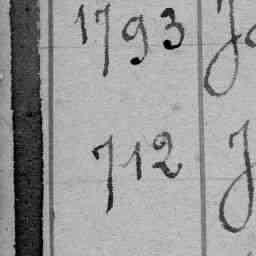 1793 J
712 J